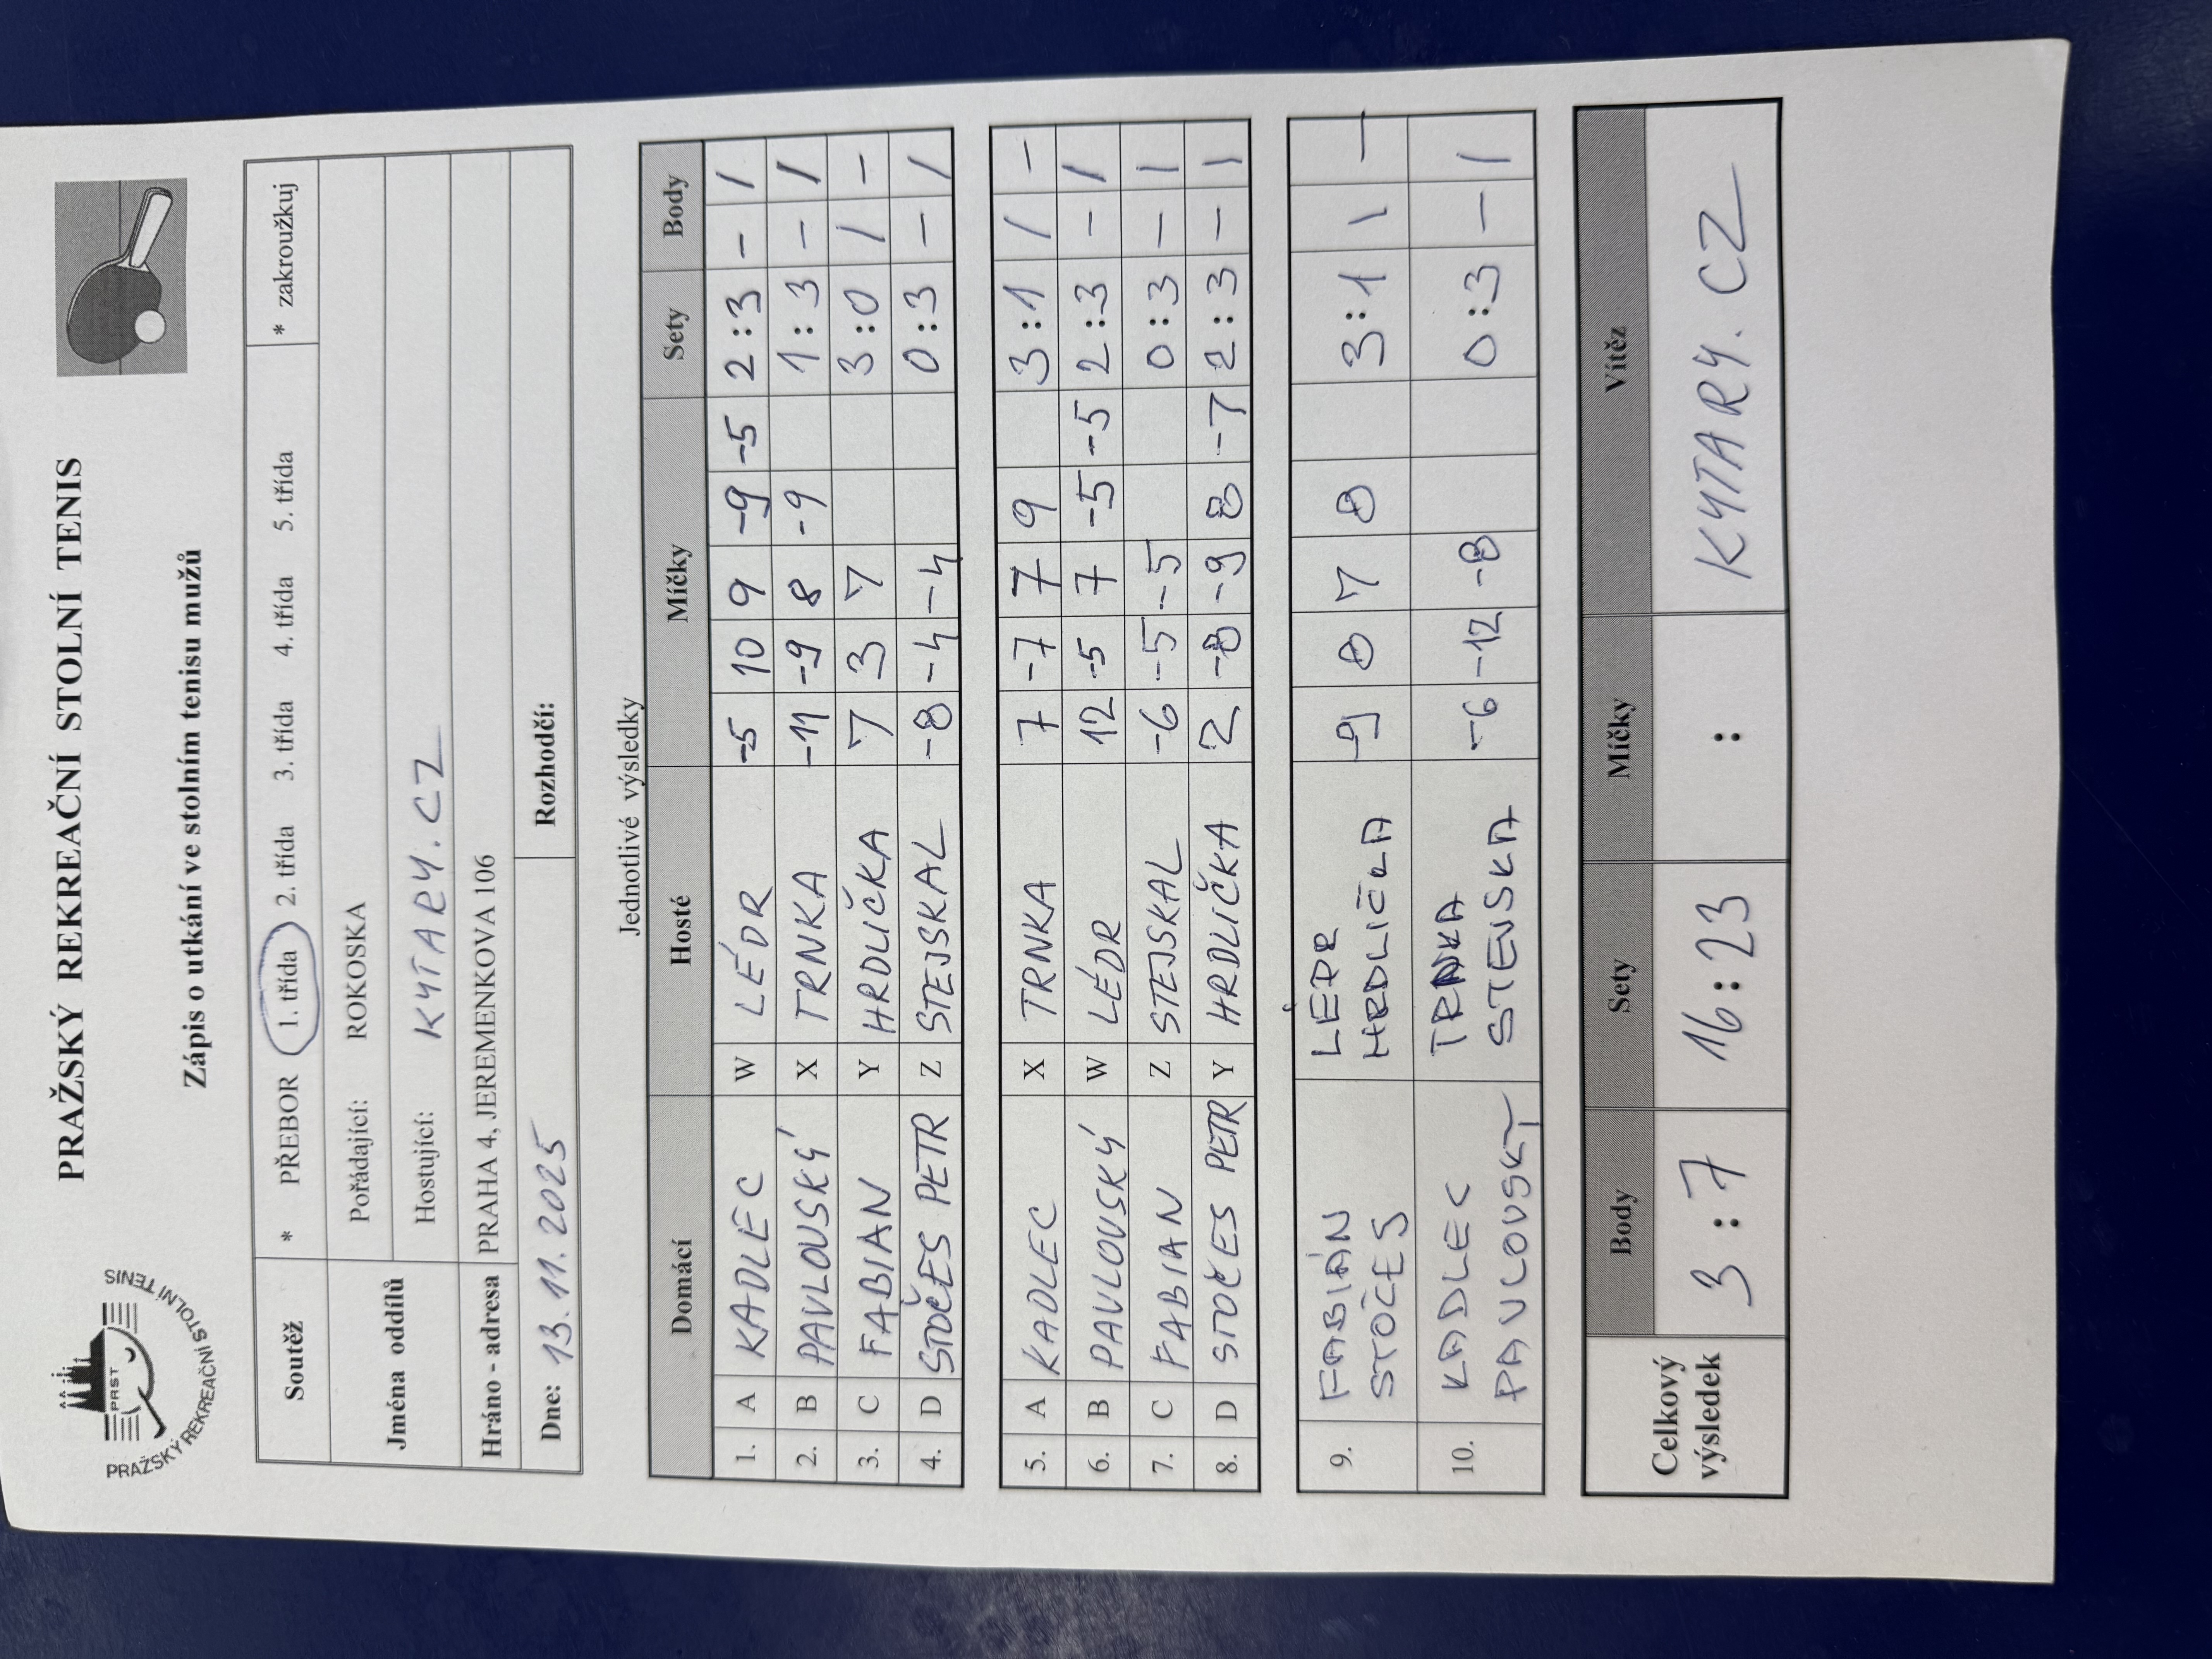 PRAŽSKÝ REKREAČNÍ STOLNÍ TENIS
PRST
PRAŽSKÝ REKREAČNÍ STOLNÍ TENIS
Zápis o utkání ve stolním tenisu mužů
Soutěž * PŘEBOR 1. třída 2. třída 3. třída 4. třída 5. třída * zakroužkuj
Jména oddílů Pořádající: ROKOSKA
Hostující: KYTARY.CZ
Hráno - adresa PRAHA 4, JEREMENKOVA 106
Dne: 13.11.2025 Rozhodčí:
Jednotlivé výsledky
Domácí Hosté Míčky Sety Body
1. A KADLEC W LÉDR -5 10 9 -9 -5 2:3 - 1
2. B PAVLOUSKÝ X TRNKA -11 -9 8 -9 1:3 - 1
3. C FABIAN Y HRDLIČKA 7 3 7 3:0 1 -
4. D STOČES PETR Z STEJSKAL -8 -4 -4 0:3 - 1
5. A KADLEC X TRNKA 7 -7 7 9 3:1 1 -
6. B PAVLOUSKÝ W LÉDR 12 -5 7 -5 -5 2:3 - 1
7. C FABIAN Z STEJSKAL -6 -5 -5 0:3 - 1
8. D STOČES PETR Y HRDLIČKA 2 -8 -9 8 -7 2:3 - 1
9. FABIÁN LÉDR -9 8 7 8 3:1 1 -
STOČES HRDLIČKA
10. KADLEC TRNKA -6 -12 -8 0:3 - 1
PAVLOVSKÝ STEJSKA
Celkový výsledek Body Sety Míčky Vítěz
3:7 16:23 : KYTARY.CZ